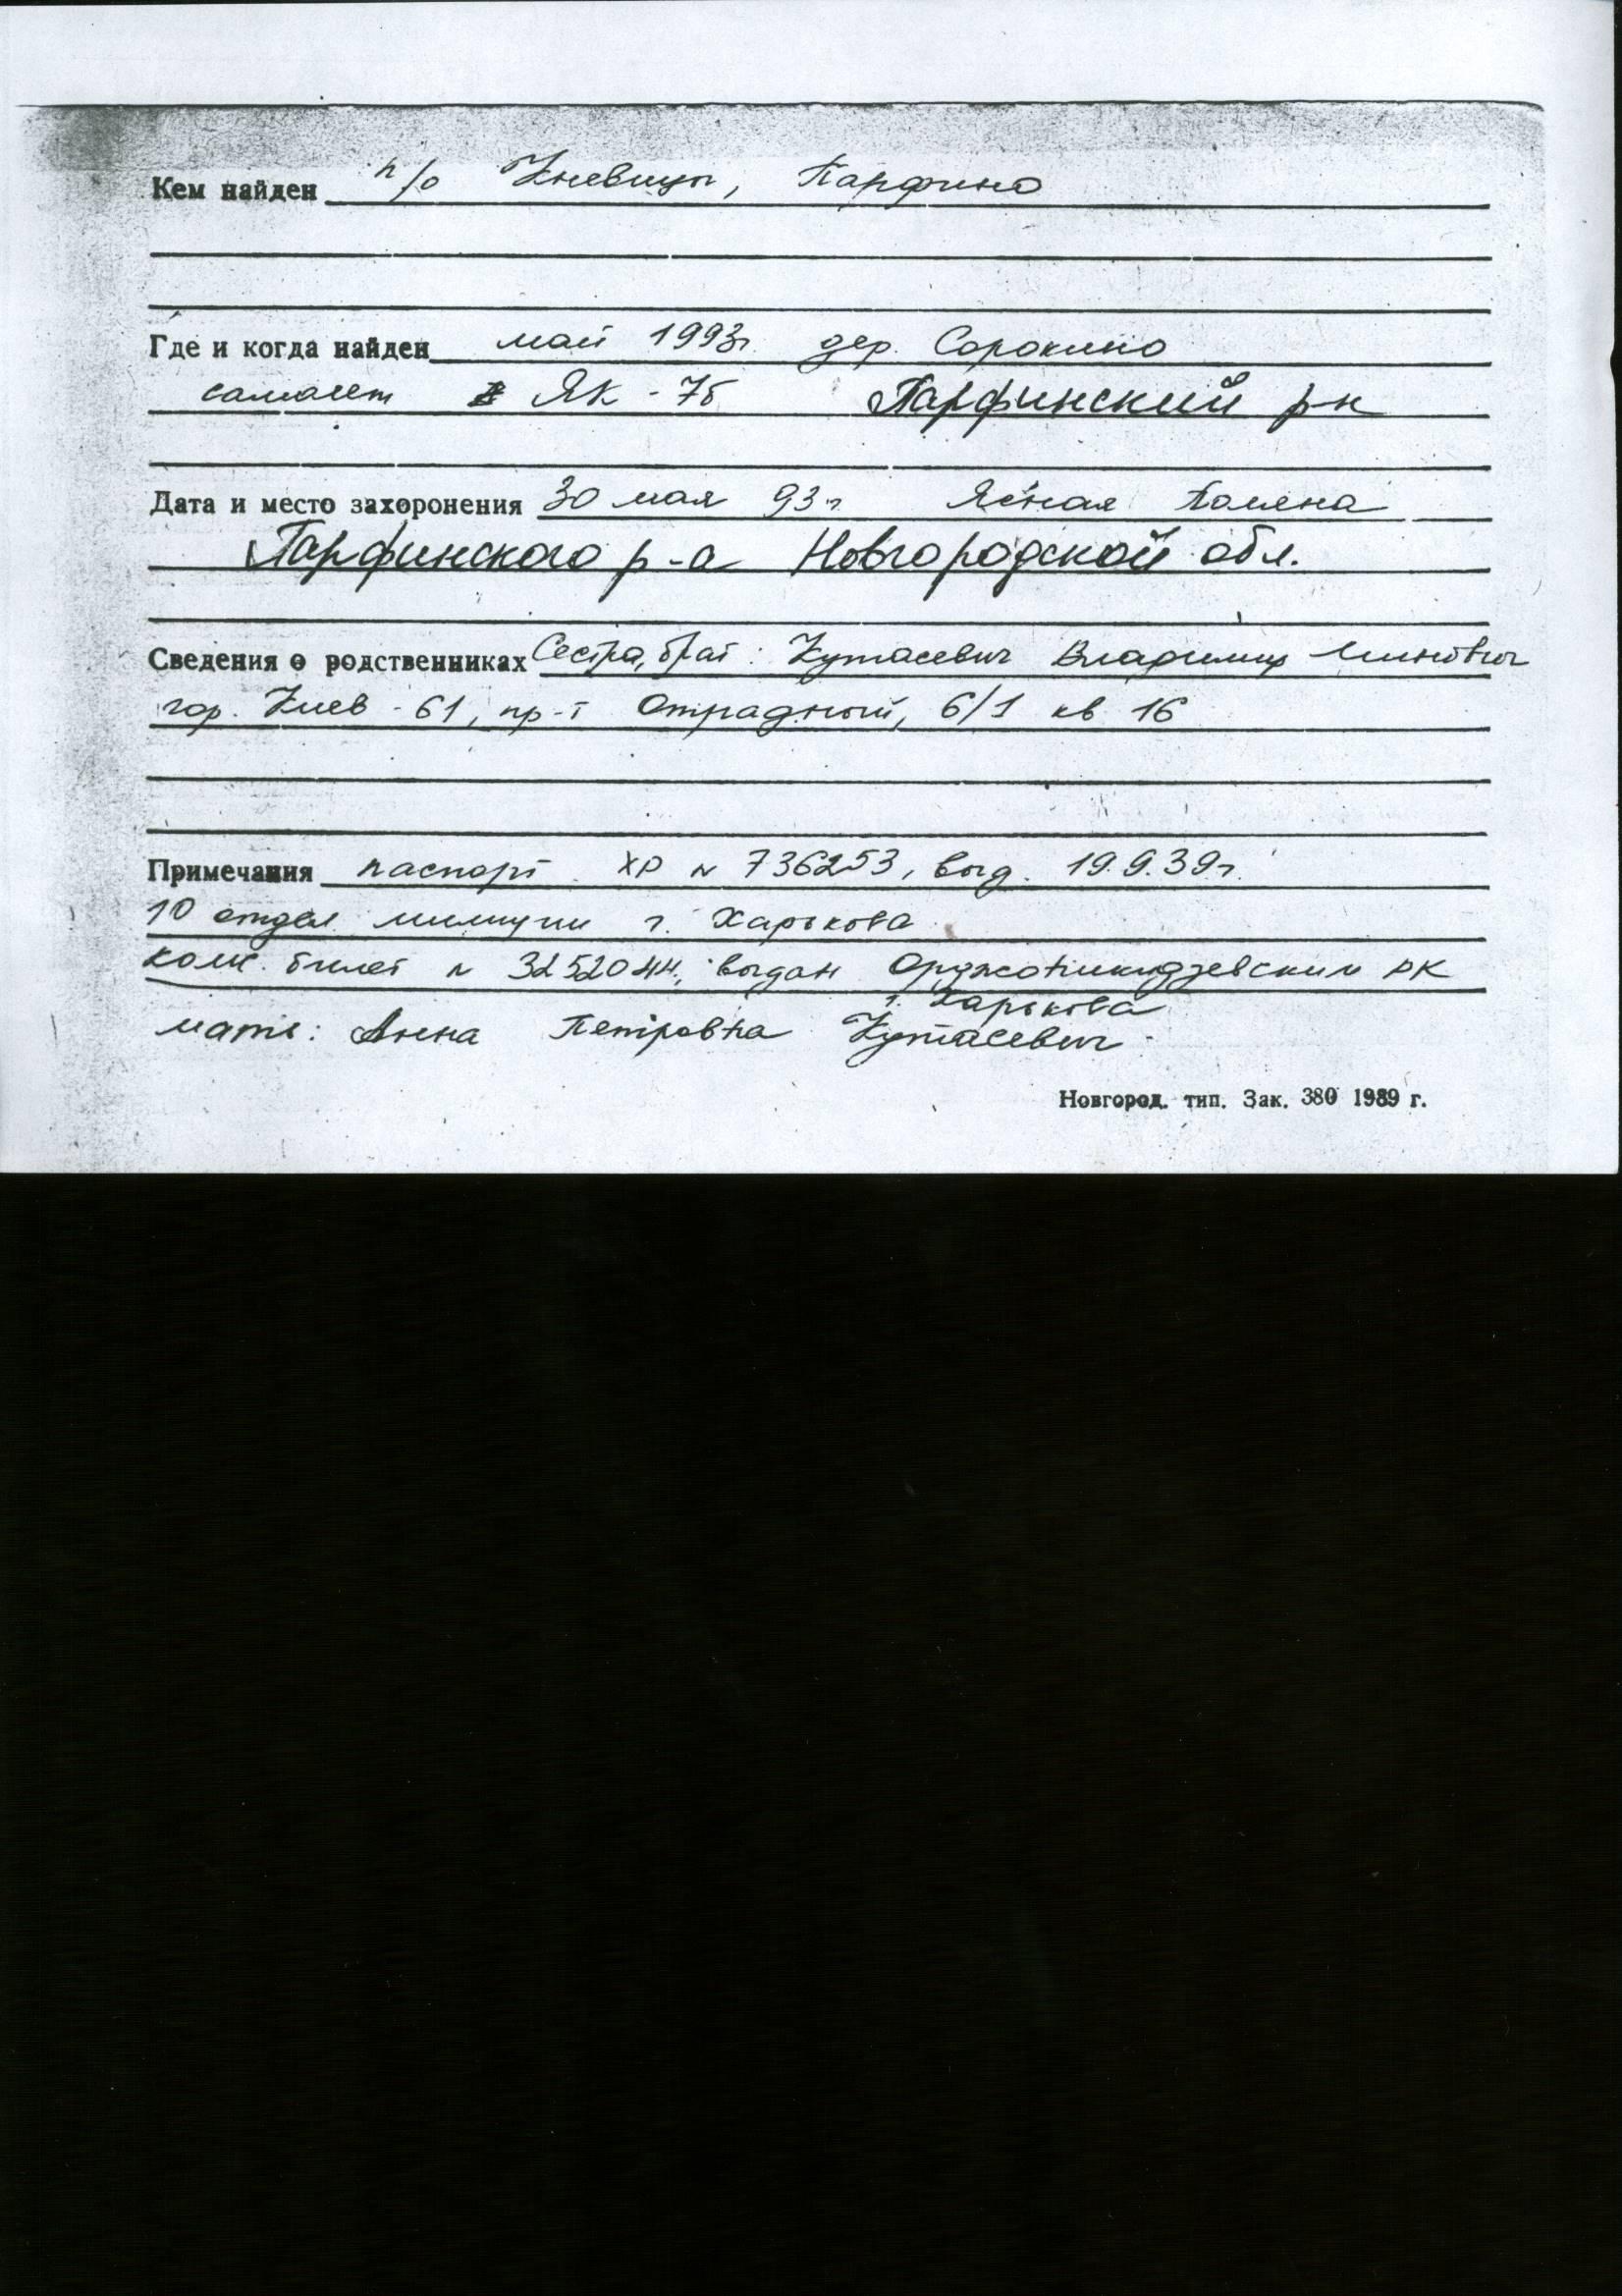 Кем найден п/о Кневицы, Парфино
Где и когда найден май 1993г. дер. Сорокино
самолет ЯК - 7б Парфинский р-н
Дата и место захоронения 30 мая 93г. Ясная Поляна
Парфинского р-а Новгородской обл.
Сведения о родственниках Сестра, брат: Кутасевич Владимир Минович
гор. Киев - 61, пр-т Отрадный, 6/1 кв 16
Примечания паспорт ХР № 736253, выд. 19.9.39г.
10 отдел милиции г. Харькова
комс. билет № 3252044, выдан Орджоникидзевским РК
г. Харькова
мать: Анна Петровна Кутасевич
Новгород. тип. Зак. 380 1989 г.